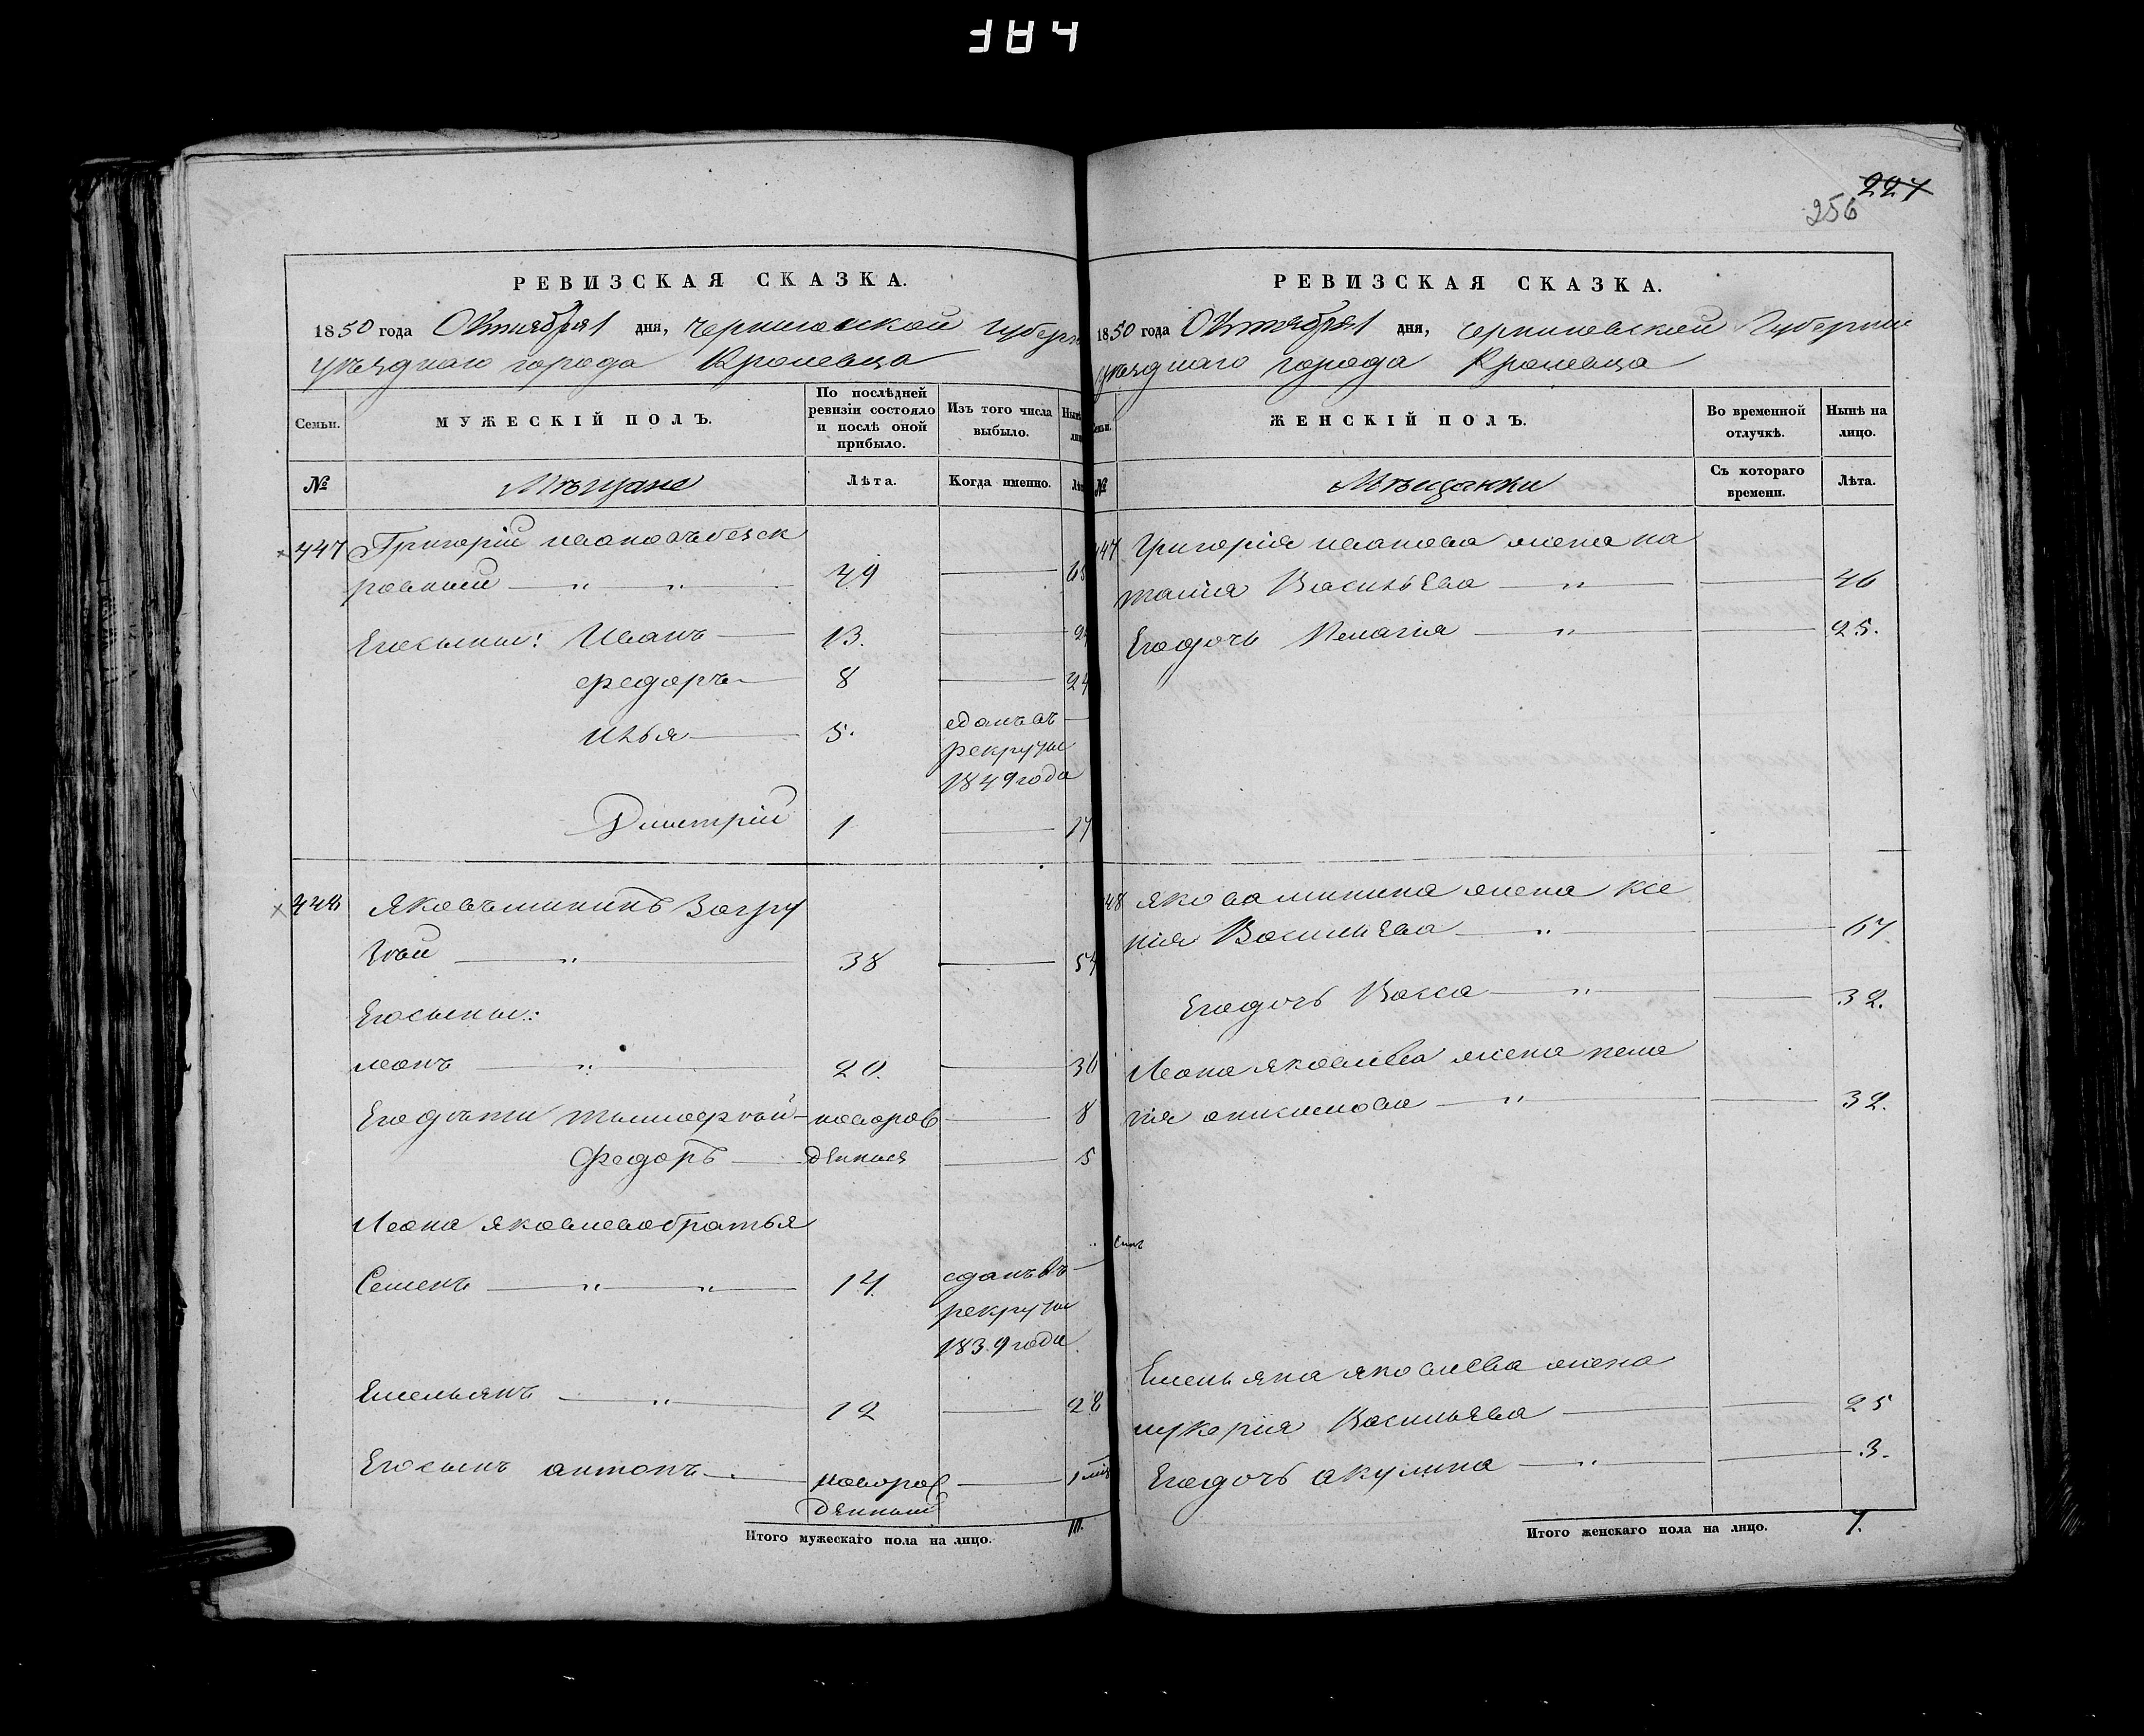 ЧАЕ
227
256
РЕВИЗСКАЯ СКАЗКА.
1850 года Октября 1 дня, Черниговской Губерн
уѣзднаго города Кролевца
Семьи. МУЖЕСКІЙ ПОЛЪ. По послѣдней ревизіи состояло и послѣ оной прибыло. Изъ того числа выбыло. Нынѣ
№ Мѣщане Лѣта. Когда именно.
447 Григорій Ивановъ Безск
ровный 49 65
Его сыны: Иванъ 13. 29
Федоръ 8 24
Илья 5. сданъ въ
рекруты
1849 года
Дмитрій 1 17
448 Яковъ Мининъ Загру
38 54
Его сыны:
Леонъ 20. 36
Его дѣти Тимофѣй новорож 8
Федоръ денные 5
Леона Яковлева братья
Семенъ 14 сданъ въ
рекруты
1839 года
Емельянъ 12 28
Его сынъ Антонъ новорож
денный
Итого мужескаго пола на лицо. 10.
РЕВИЗСКАЯ СКАЗКА.
1850 года Октября 1 дня, Черниговской Губерніи
уѣзднаго города Кролевца
ЖЕНСКІЙ ПОЛЪ. Во временной отлучкѣ. Нынѣ на лицо.
№ Мѣщанки Съ котораго времени. Лѣта.
447 Григорія Иванова жена На
талія Васильева 46
Его дочь Пелагія 25.
448 Якова Минина жена Ксе
нія Васильева 67
Его дочь Васса 32.
Леона Яковлева жена Пела
гія Онисимова 32.
Емельяна Яковлева жена
Лукерія Васильева 25
Его дочь Акулина 3.
Итого женскаго пола на лицо. 7.